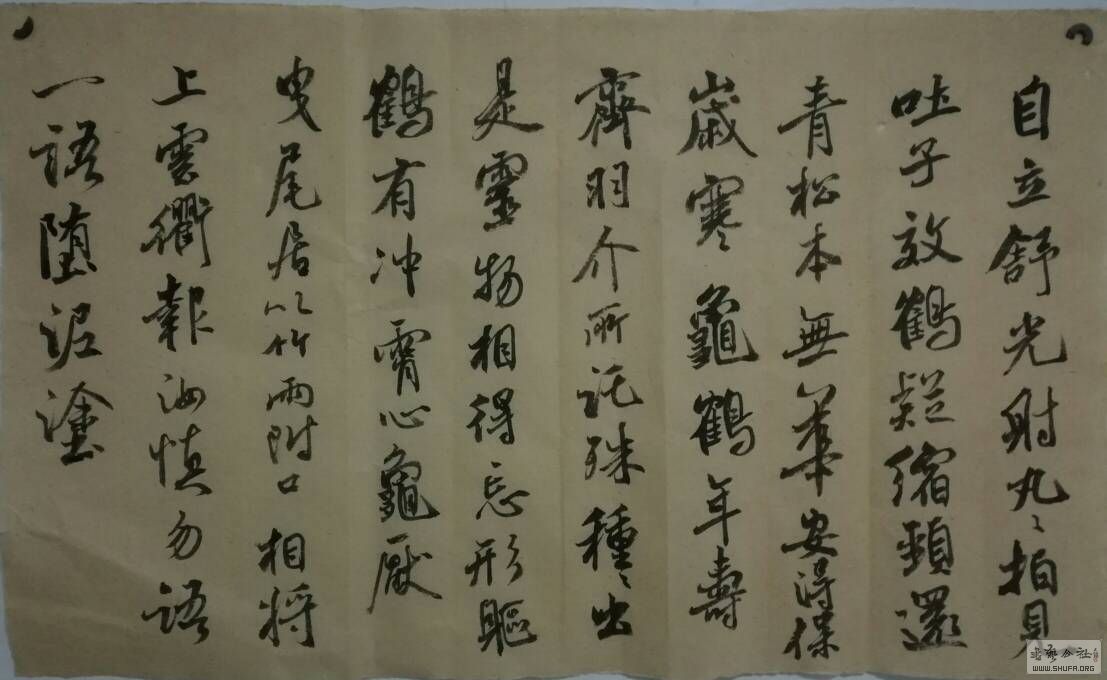 自立舒光射丸〻拍見
吐子效鶴疑縮頸還
青松本無華安得保
歲寒龜鶴年壽
齊羽介所託殊種〻出
是靈物相得忘形軀
鶴有冲霄心龜厭
曳尾居以竹兩附口相將
上雲衢報汝慎勿語
一語堕泥塗
WWW.SHUFA.ORG